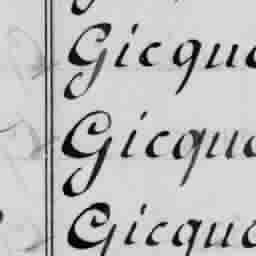 Gicque
Gicque
Gicque